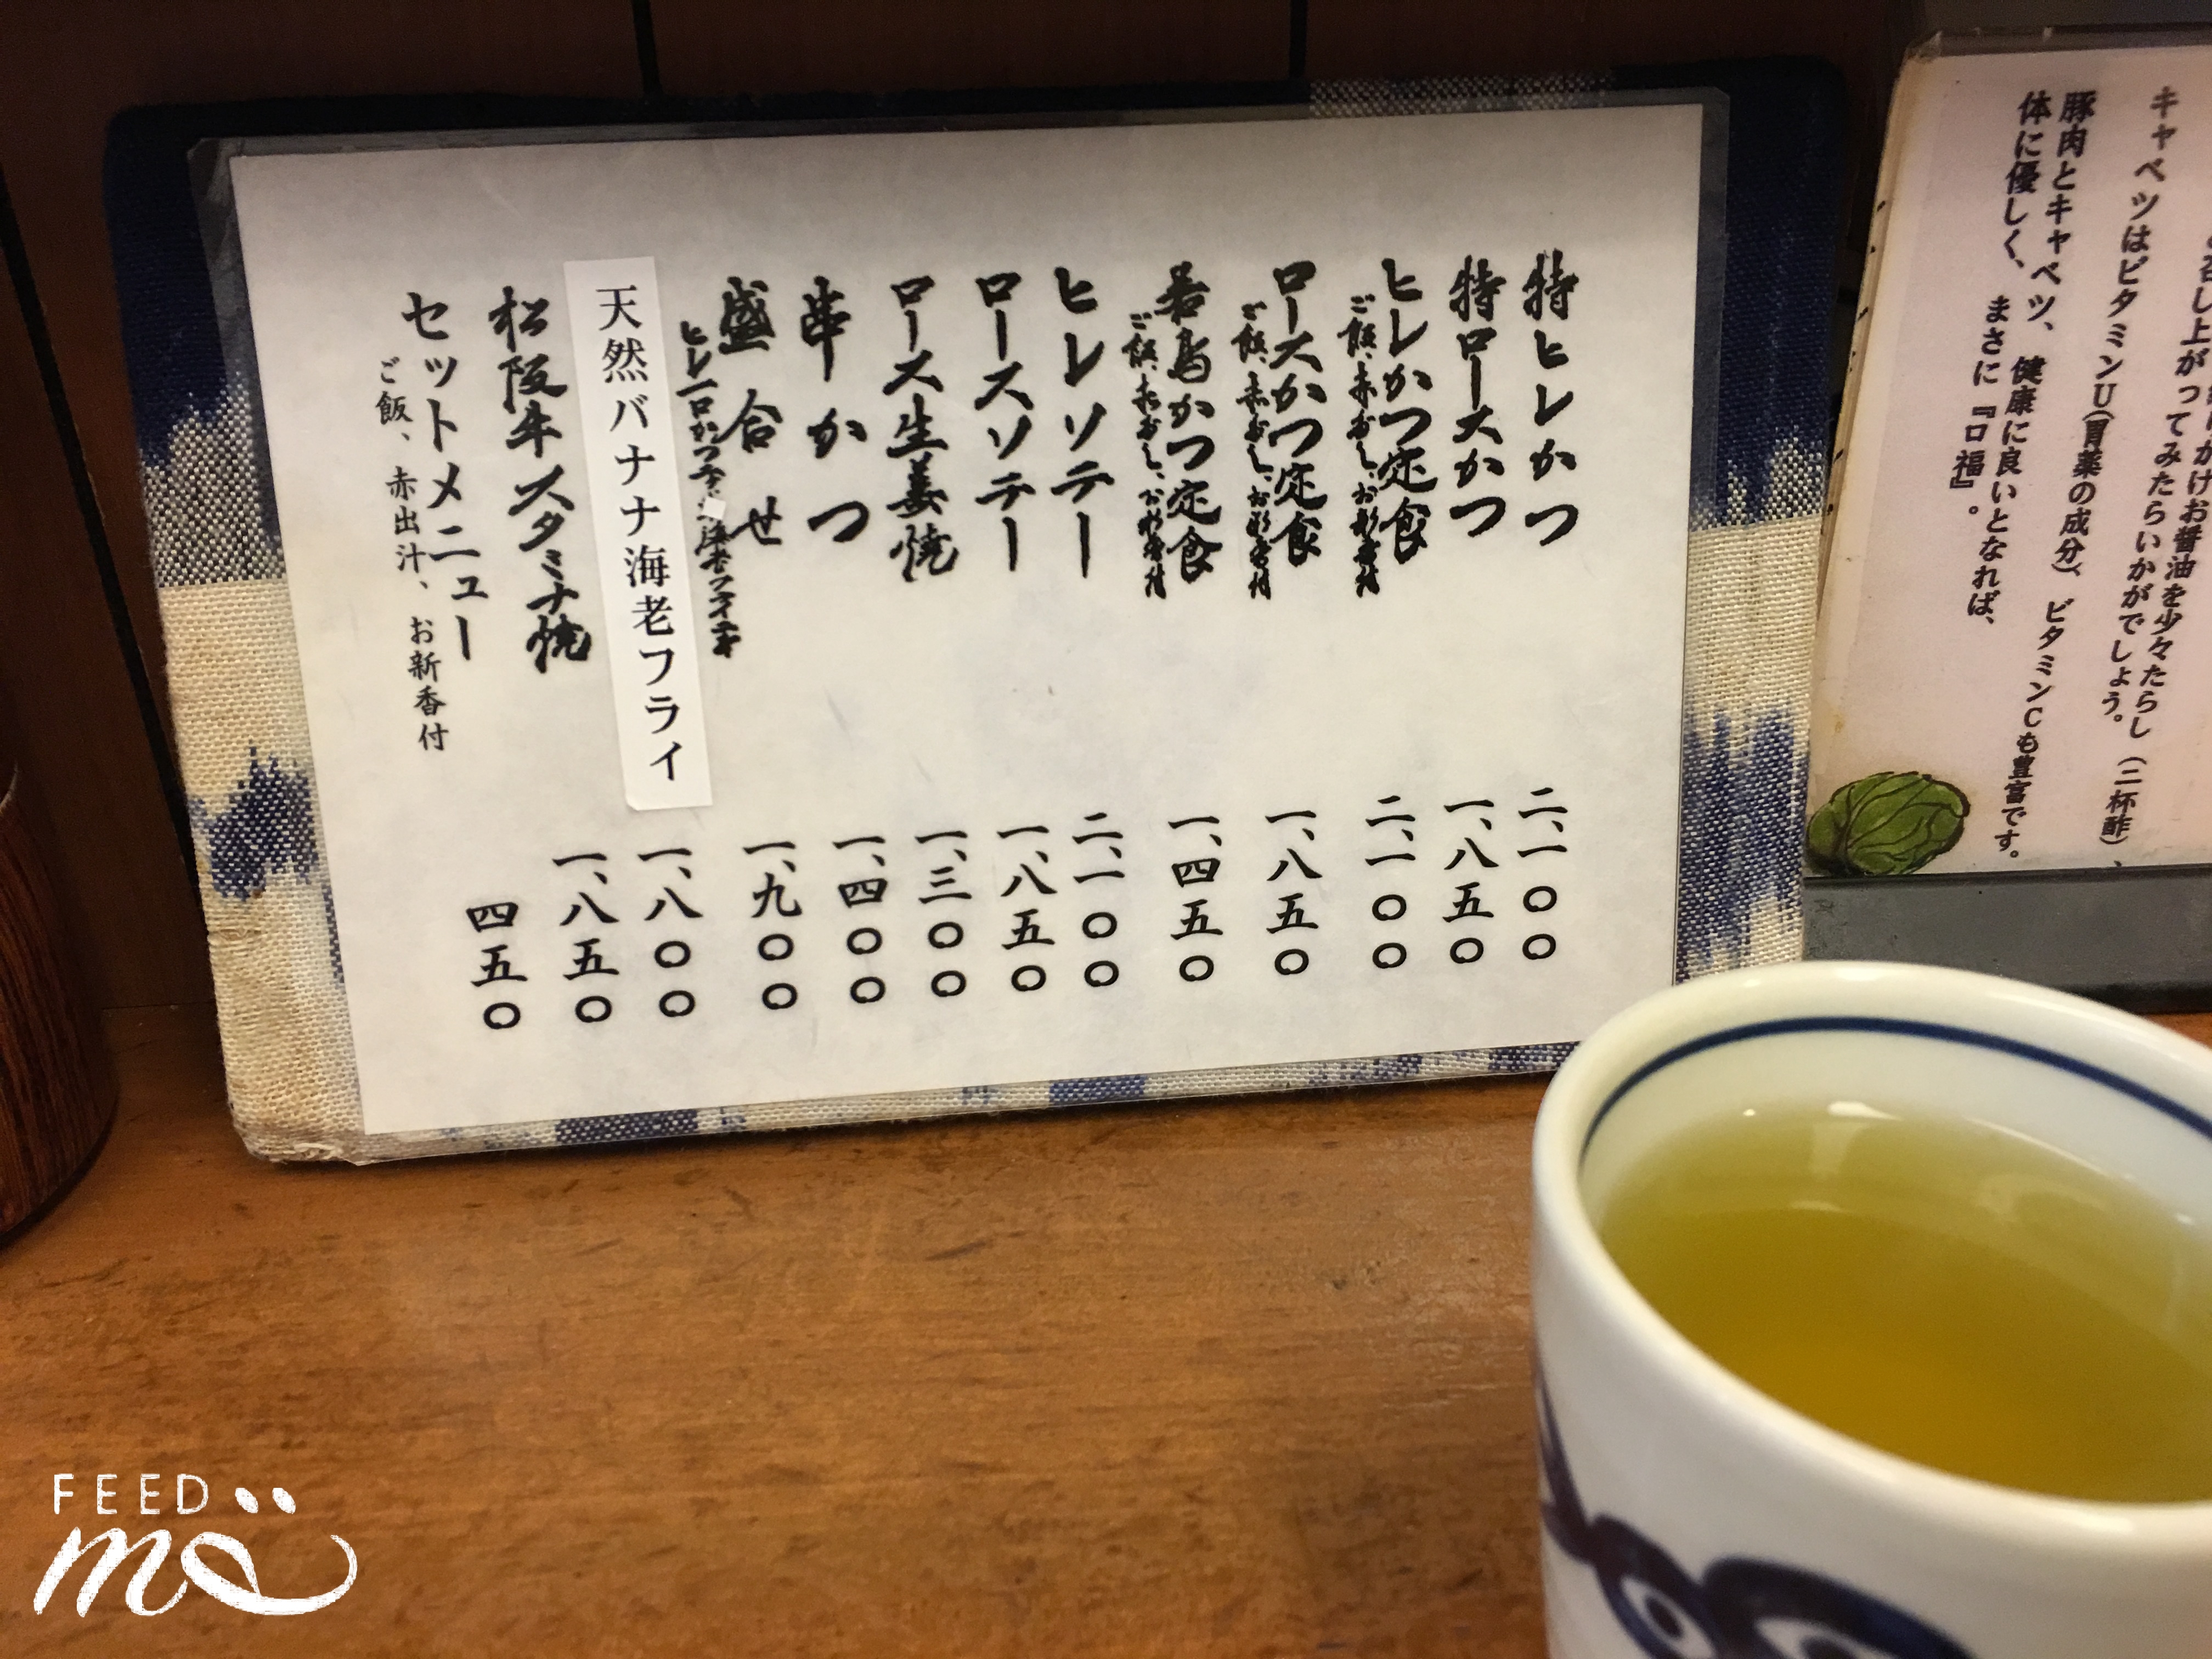 特ヒレかつ 二、一〇〇
特ロースかつ 一、八五〇
ヒレかつ定食 二、一〇〇
ご飯、赤だし、お新香付
ロースかつ定食 一、八五〇
ご飯、赤だし、お新香付
若鳥かつ定食 一、四五〇
ご飯、赤だし、お新香付
ヒレソテー 二、一〇〇
ロースソテー 一、八五〇
ロース生姜焼 一、三〇〇
串かつ 一、四〇〇
盛合せ 一、九〇〇
ヒレ一口かつ
海老フライ二本
天然バナナ海老フライ 一、八〇〇
松阪牛スタミナ焼 一、八五〇
セットメニュー 四五〇
ご飯、赤出汁、お新香付
召し上が
かけお醤油を少々たらし（二杯酢）、
ってみたらいかがでしょう。
キャベツはビタミンU（胃薬の成分）、ビタミンCも豊富です。
豚肉とキャベツ、健康に良いとなれば、
体に優しく、まさに『口福』。
FEED
me